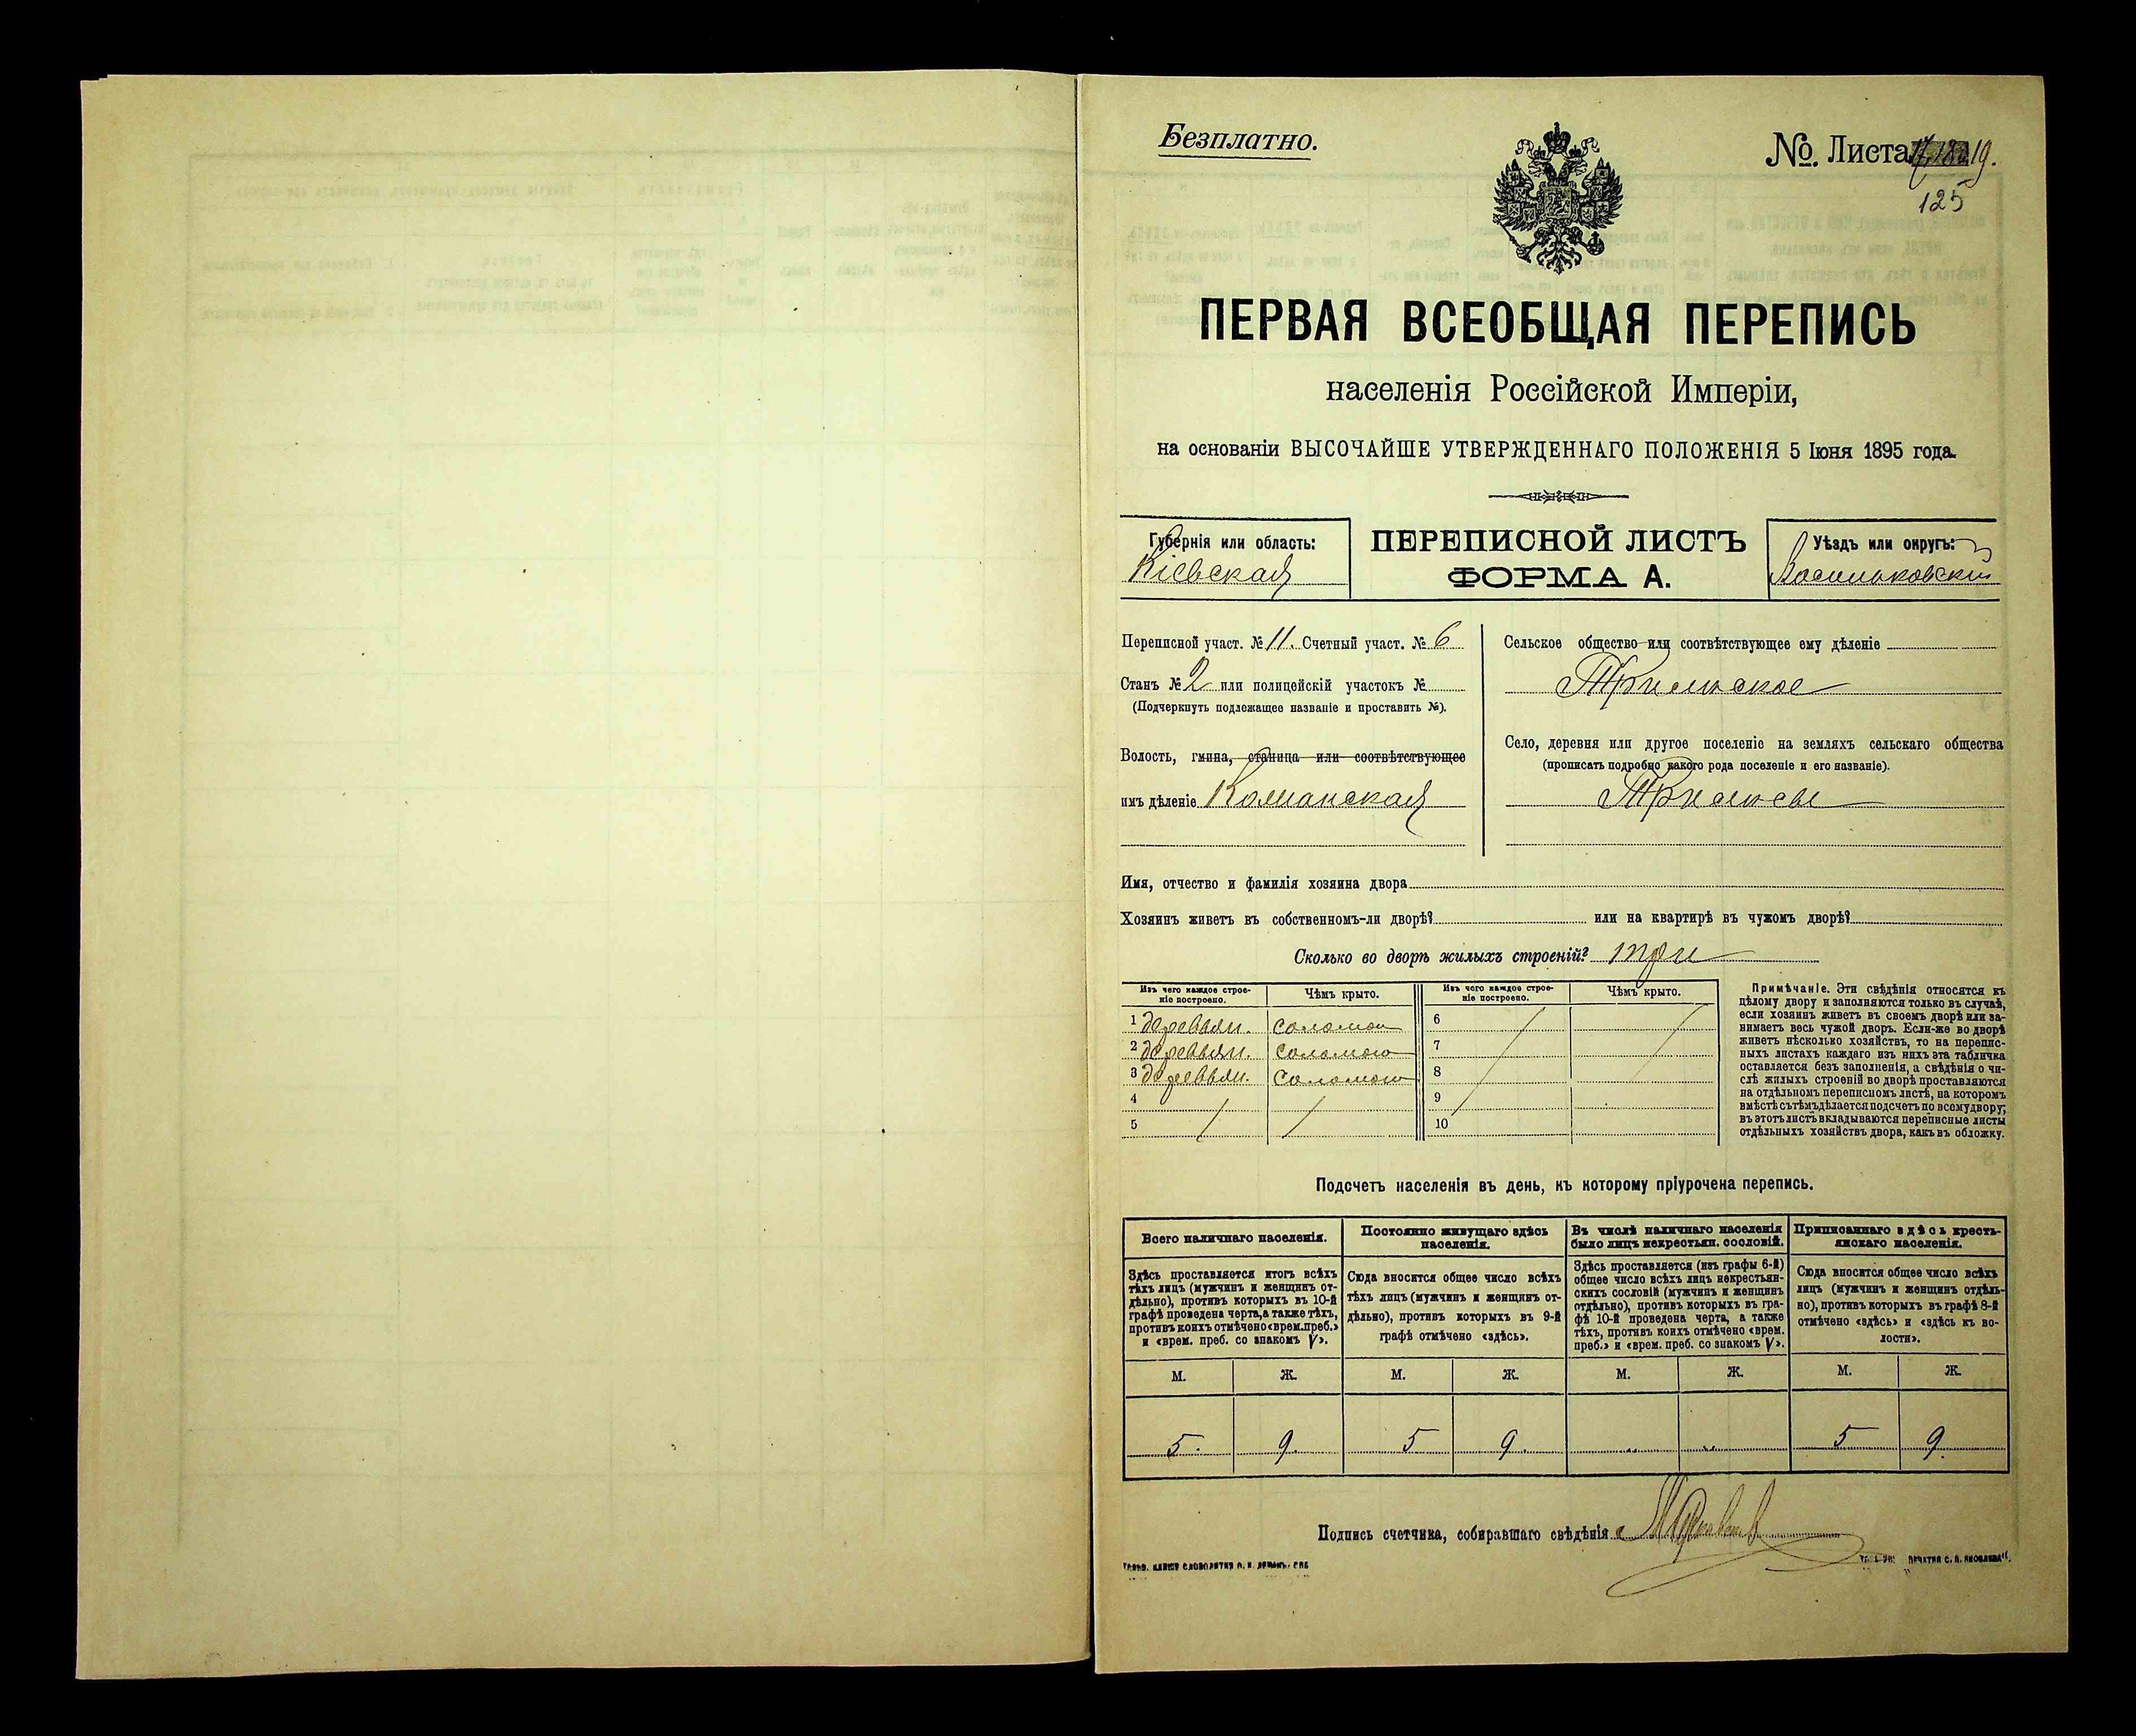 Безплатно.
№ Листа 17, 18 и 19.
125
ПЕРВАЯ ВСЕОБЩАЯ ПЕРЕПИСЬ
населенія Россійской Имперіи,
на основаніи ВЫСОЧАЙШЕ УТВЕРЖДЕННАГО ПОЛОЖЕНІЯ 5 Іюня 1895 года.
Губернія или область:
Кіевская
ПЕРЕПИСНОЙ ЛИСТЪ
ФОРМА А.
Уѣздъ или округъ:
Васильковскій
Переписной участ. № 11. Счетный участ. № 6
Станъ № 2 или полицейскій участокъ №
(Подчеркнуть подлежащее названіе и проставить №).
Волость, гмина, станица или соотвѣтствующее
имъ дѣленіе
Сельское общество или соотвѣтствующее ему дѣленіе
Трилиское
Село, деревня или другое поселеніе на земляхъ сельскаго общества
(прописать подробно какого рода поселеніе и его названіе).
Трилисы
Имя, отчество и фамилія хозяина двора
Хозяинъ живетъ въ собственномъ-ли дворѣ? или на квартирѣ въ чужомъ дворѣ?
Сколько во дворѣ жилыхъ строеній? три
Изъ чего каждое строеніе построено. Чѣмъ крыто. Изъ чего каждое строеніе построено. Чѣмъ крыто.
1 деревян. соломою 6
2 деревян. соломою 7
3 деревян. соломою 8
4 9
5 10
Примѣчаніе. Эти свѣдѣнія относятся къ
цѣлому двору и заполняются только въ случаѣ,
если хозяинъ живетъ въ своемъ дворѣ или за-
нимаетъ весь чужой дворъ. Если-же во дворѣ
живетъ нѣсколько хозяйствъ, то на перепис-
ныхъ листахъ каждаго изъ нихъ эта табличка
оставляется безъ заполненія, а свѣдѣнія о чи-
слѣ жилыхъ строеній во дворѣ проставляются
на отдѣльномъ переписномъ листѣ, на которомъ
вмѣстѣ съ тѣмъ дѣлается подсчетъ по всему двору;
въ этотъ листъ вкладываются переписные листы
отдѣльныхъ хозяйствъ двора, какъ въ обложку.
Подсчетъ населенія въ день, къ которому пріурочена перепись.
Всего наличнаго населенія.
Здѣсь проставляется итогъ всѣхъ
тѣхъ лицъ (мужчинъ и женщинъ от-
дѣльно), противъ которыхъ въ 10-й
графѣ проведена черта, а также тѣхъ,
противъ коихъ отмѣчено «врем. преб.»
и «врем. преб. со знакомъ V».
Постоянно живущаго здѣсь
населенія.
Сюда вносится общее число всѣхъ
тѣхъ лицъ (мужчинъ и женщинъ от-
дѣльно), противъ которыхъ въ 9-й
графѣ отмѣчено «здѣсь».
Въ числѣ наличнаго населенія
было лицъ некрестьян. сословій.
Здѣсь проставляется (изъ графы 6-й)
общее число всѣхъ лицъ некрестьян-
скихъ сословій (мужчинъ и женщинъ
отдѣльно), противъ которыхъ въ гра-
фѣ 10-й проведена черта, а также
тѣхъ, противъ коихъ отмѣчено «врем.
преб.» и «врем. преб. со знакомъ V».
Приписаннаго здѣсь кресть-
янскаго населенія.
Сюда вносится общее число всѣхъ
лицъ (мужчинъ и женщинъ отдѣль-
но), противъ которыхъ въ графѣ 8-й
отмѣчено «здѣсь» и «здѣсь къ во-
лости».
М. Ж. М. Ж. М. Ж. М. Ж.
5. 9. 5 9. „ „ 5 9.
Подпись счетчика, собиравшаго свѣдѣнія